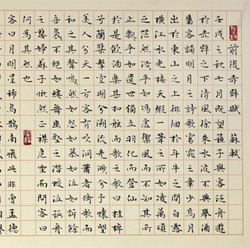 前後赤壁賦 蘇軾
壬戌之秋七月既望蘇子與客泛舟遊
於赤壁之下清風徐來水波不興舉酒
屬客誦明月之詩歌窈窕之章少焉月
出於東山之上徘徊於斗牛之間白露
橫江水光接天縱一葦之所如凌萬頃
之茫然浩浩乎如馮虛御風而不知其所
止飄飄乎如遺世獨立羽化而登仙
於是飲酒樂甚扣舷而歌之歌曰桂棹
兮蘭槳擊空明兮泝流光渺渺兮予懷望
美人兮天一方客有吹洞簫者倚歌而
和之其聲嗚嗚然如怨如慕如泣如訴
不絕如縷舞幽壑之潛蛟泣孤舟
之嫠婦蘇子愀然正襟危坐而問客曰
何為其然也
客曰月明星稀烏鵲南飛此非曹孟德